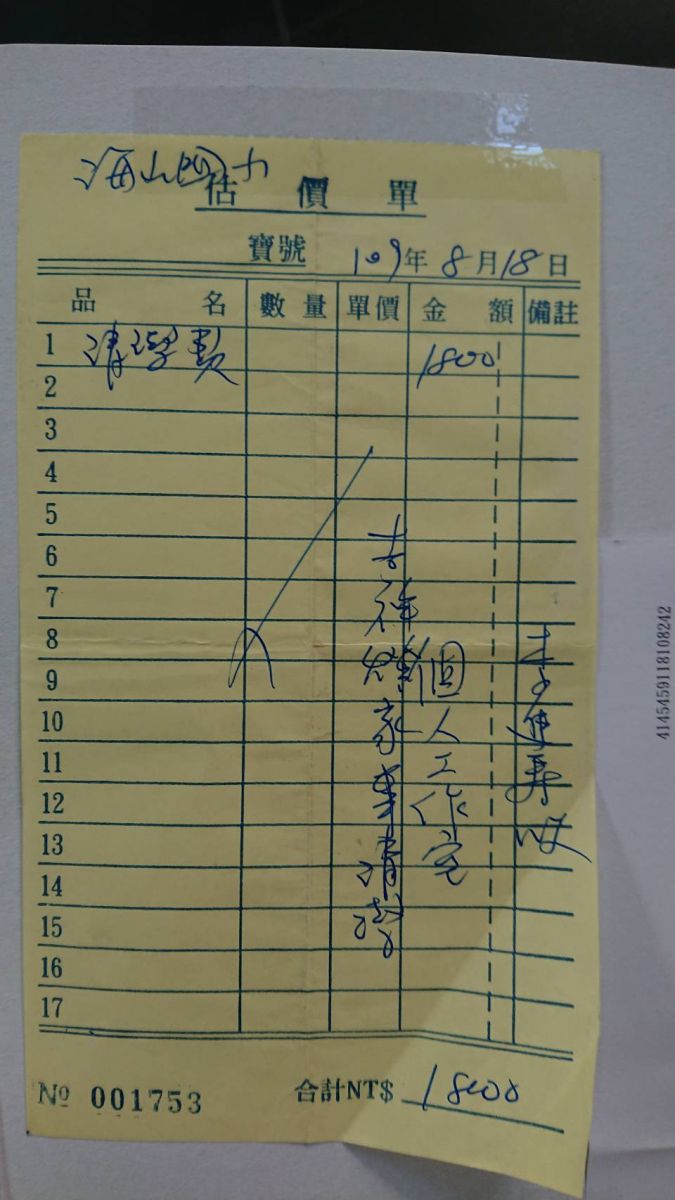 海山國小
估價單
寶號 109年8月18日
品名 數量 單價 金額 備註
1 清潔費 1800
2
3
4
5
6
7
8
9
10
11
12
13
14
15
16
17
吉祥 家事清潔
個人工作室
李
№ 001753 合計NT$ 1800
4145459118108242